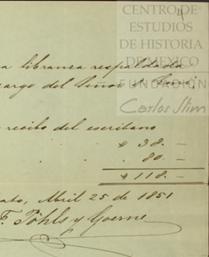 CENTRO DE
ESTUDIOS
DE HISTORIA
DE MÉXICO
FUNDACIÓN
Carlos Slim
a libranza respaldada
cargo del Señor
recibo del escribano
" 38. —
" 80. —
" 118. —
Abril 25 de 1851
F. Pöhls y Goerne